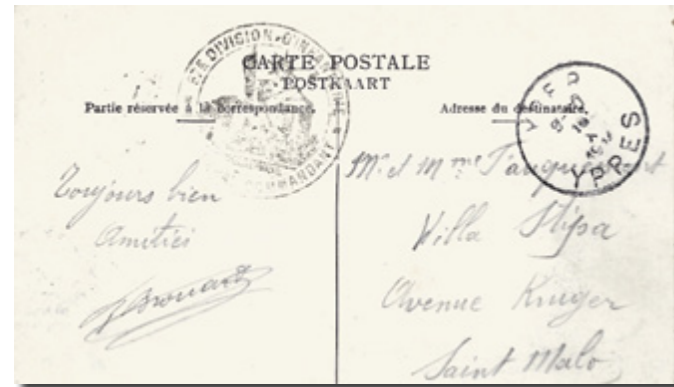 CARTE POSTALE
POSTKAART
Partie réservée à la correspondance.
Adresse du destinataire.
DIVISION D'INFANTERIE
COMMANDANT
YPRES
Toujours bien
Amitiés
Mr et Mme
Villa Stipa
Avenue Kruger
Saint Malo